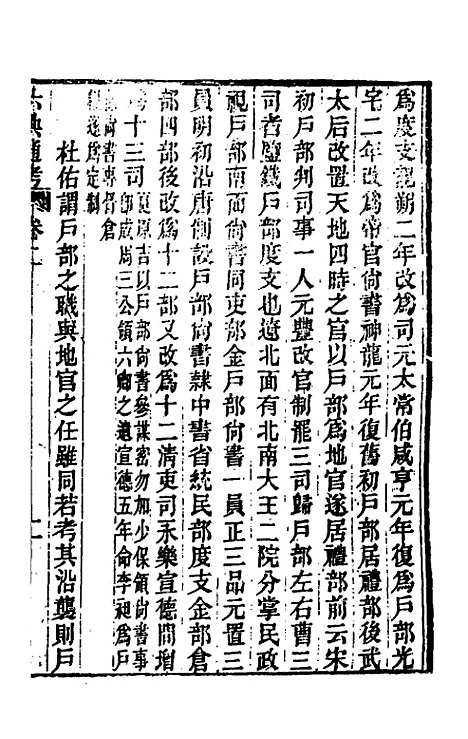 爲度支龍朔二年改爲司元太常伯咸亨元年復爲戶部光
宅二年改爲帝官尙書神龍元年復舊初戶部居禮部後武
太后改置天地四時之官以戶部爲地官遂居禮部前云宋
初戶部判司事一人元豐改官制罷三司歸戶部左右曹三
司者鹽鐵戶部度支也遼北面有北南大王二院分掌民政
視戶部南面尙書同吏部金戶部尙書一員正三品元置三
員明初沿唐制設戶部尙書隸中書省統民部度支金部倉
部四部後改爲十二部又改爲十二淸吏司永樂宣德間增
爲十三司
夏原吉以戶部尙書參謀密勿加少保領尙書事
卽成周三公領六鄕之遺宣德五年命李昶爲戶
部尙書專督倉
遂爲定制
杜佑謂戶部之職與地官之任雖同若考其沿襲則戶
六典通考 卷十